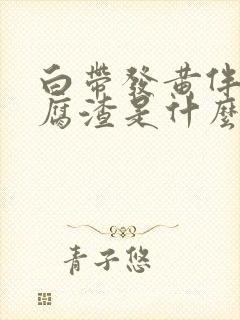 白帶發黃伴
腐渣是什麼
青子悠